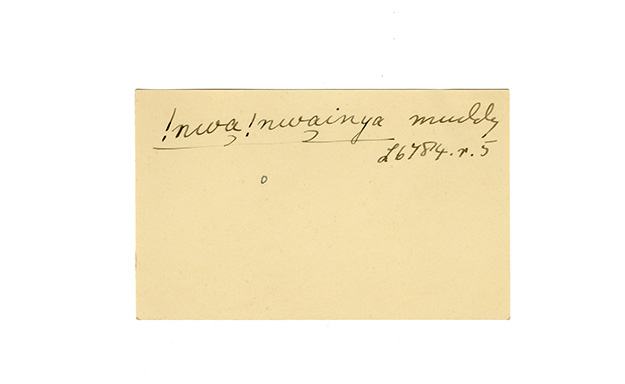 !nwa̢!nwa̢inya muddy
L6784.r.5